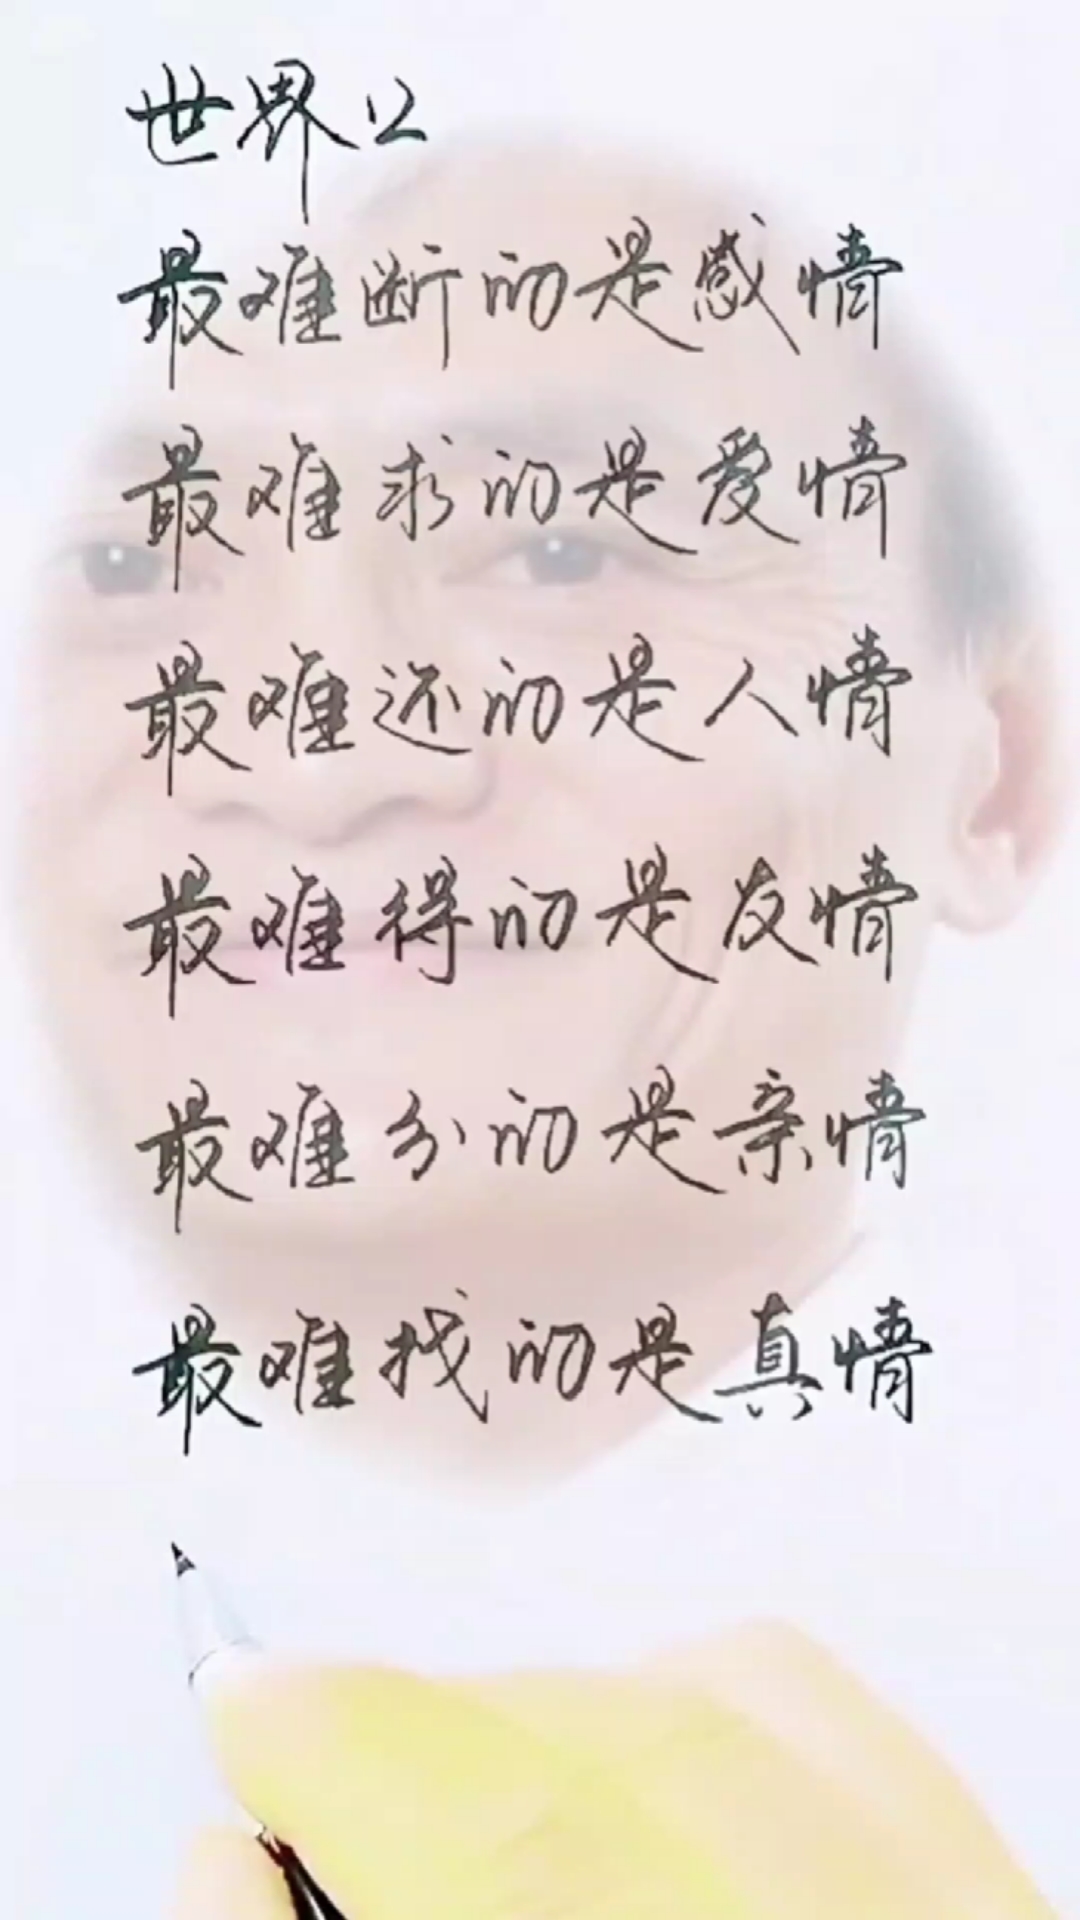 世界上
最难断的是感情
最难求的是爱情
最难还的是人情
最难得的是友情
最难分的是亲情
最难找的是真情